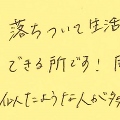 落ちついて生活
できる所です!
似たような人が多